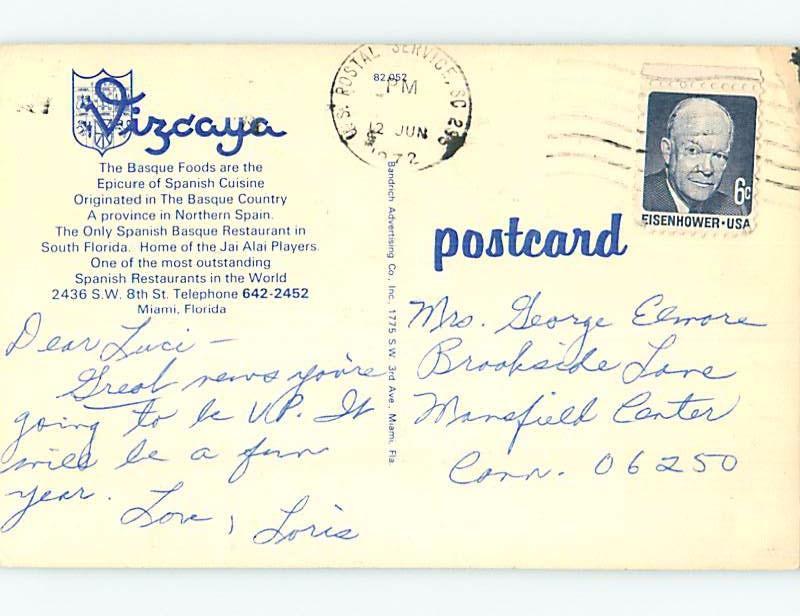 Vizcaya
The Basque Foods are the
Epicure of Spanish Cuisine
Originated in The Basque Country
A province in Northern Spain.
The Only Spanish Basque Restaurant in
South Florida. Home of the Jai Alai Players.
One of the most outstanding
Spanish Restaurants in the World
2436 S.W. 8th St. Telephone 642-2452
Miami, Florida
Dear Luci -
Great news you're
going to be V.P. It
will be a fun
year.
Love, Loris
82,052
U.S. POSTAL SERVICE, SC
PM
12 JUN
1972
Bandrich Advertising Co., Inc. 1775 S.W. 3rd Ave., Miami, Fla.
6c
EISENHOWER·USA
postcard
Mrs. George Elmore
Brookside Lane
Mansfield Center
Conn. 06250